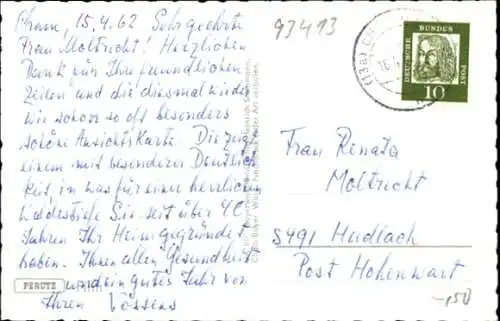 Cham, 15.4.62 Sehr geehrte
Frau Moltrecht! Herzlichen
Dank für Ihre freundlichen
Zeilen und die diesmal wieder
wie schon so oft besonders
schöne Ansichtskarte. Die zeigt
einem mit besonderer Deutlich
keit, in was für einer herrlichen
Sie seit über 40
Jahren Ihr Heim gegründet
haben. Ihnen allen Gesundheit
und ein gutes Jahr von
Ihren
PERUTZ
93413
(13a)
DEUTSCHE BUNDESPOST
10
Frau Renata
Moltrecht
8491 Hudlach
Post Hohenwart
-150